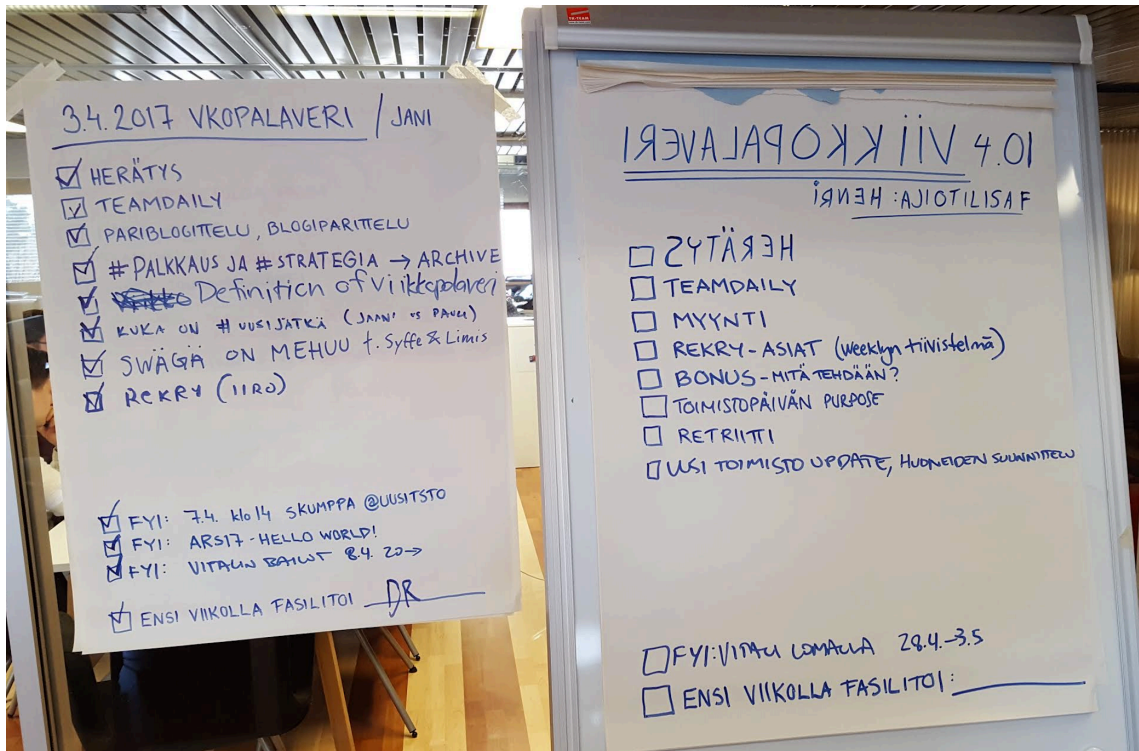 3.4.2017 VKOPALAVERI / JANI
HERÄTYS
TEAMDAILY
PARIBLOGITTELU, BLOGIPARITTELU
#PALKKAUS JA #STRATEGIA → ARCHIVE
Definition of viikkopalaveri
KUKA ON #UUSIJÄTKÄ (JAANI vs PAULI)
SWÄGÄ ON MEHUU t. Syffe & Limis
REKRY (IIRO)
FYI: 7.4. klo 14 SKUMPPA @UUSITSTO
FYI: ARS17 - HELLO WORLD!
FYI: VITALIN BAILUT 8.4. 20→
ENSI VIIKOLLA FASILITOI DR
10.4 VIIKKOPALAVERI
FASILITOIJA: HENRI
HERÄTYS
TEAMDAILY
MYYNTI
REKRY-ASIAT (weeklyn tiivistelmä)
BONUS-MITÄ TEHDÄÄN?
TOIMISTOPÄIVÄN PURPOSE
RETRIITTI
UUSI TOIMISTO UPDATE, HUONEIDEN SUUNNITTELU
FYI: VITALI LOMALLA 28.4.-3.5
ENSI VIIKOLLA FASILITOI: